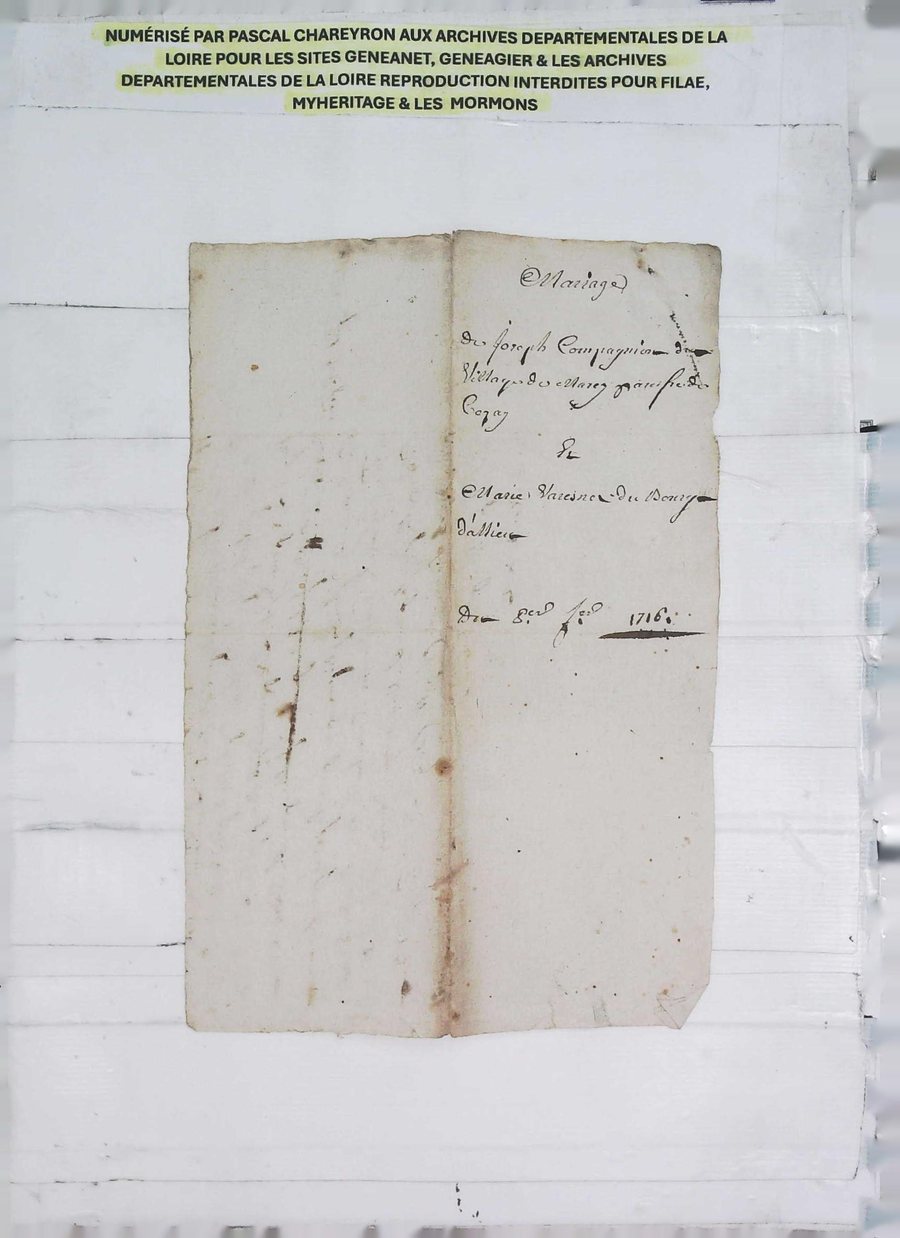 NUMÉRISÉ PAR PASCAL CHAREYRON AUX ARCHIVES DEPARTEMENTALES DE LA
LOIRE POUR LES SITES GENEANET, GENEAGIER & LES ARCHIVES
DEPARTEMENTALES DE LA LOIRE REPRODUCTION INTERDITES POUR FILAE,
MYHERITAGE & LES MORMONS
Mariage
de Joseph Compagnion du
Village de Marez de
Cezay
Et
Marie Varesne du Bourg
d'allieu
Du 8er 1716.